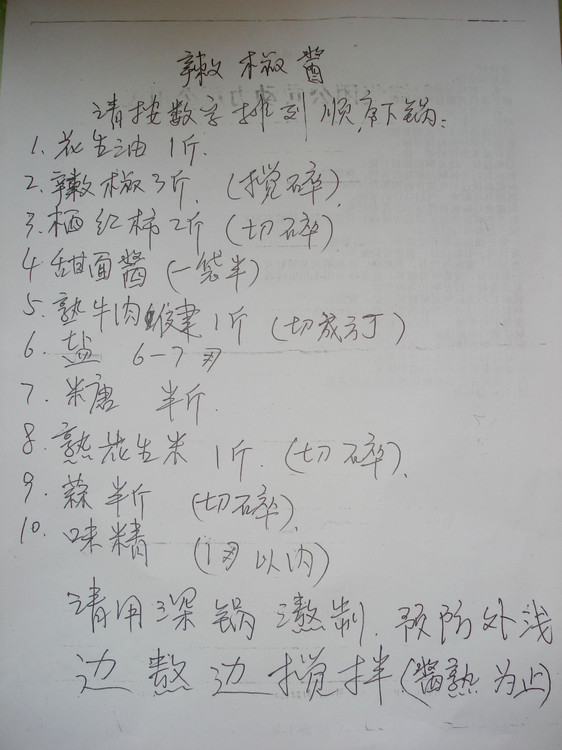 辣椒酱
请按数字排列顺序下锅:
1. 花生油 1斤.
2. 辣椒3斤. (搅碎).
3. 西红柿2斤 (切碎)
4 甜面酱 (一袋半)
5. 熟牛肉腱 1斤 (切成方丁)
6. 盐 6-7两
7. 米糖 半斤.
8. 熟花生米 1斤. (切碎).
9. 蒜半斤 (切碎).
10. 味精 (1两以内)
请用深锅熬制. 预防外溅
边熬边搅拌(酱熟为止)